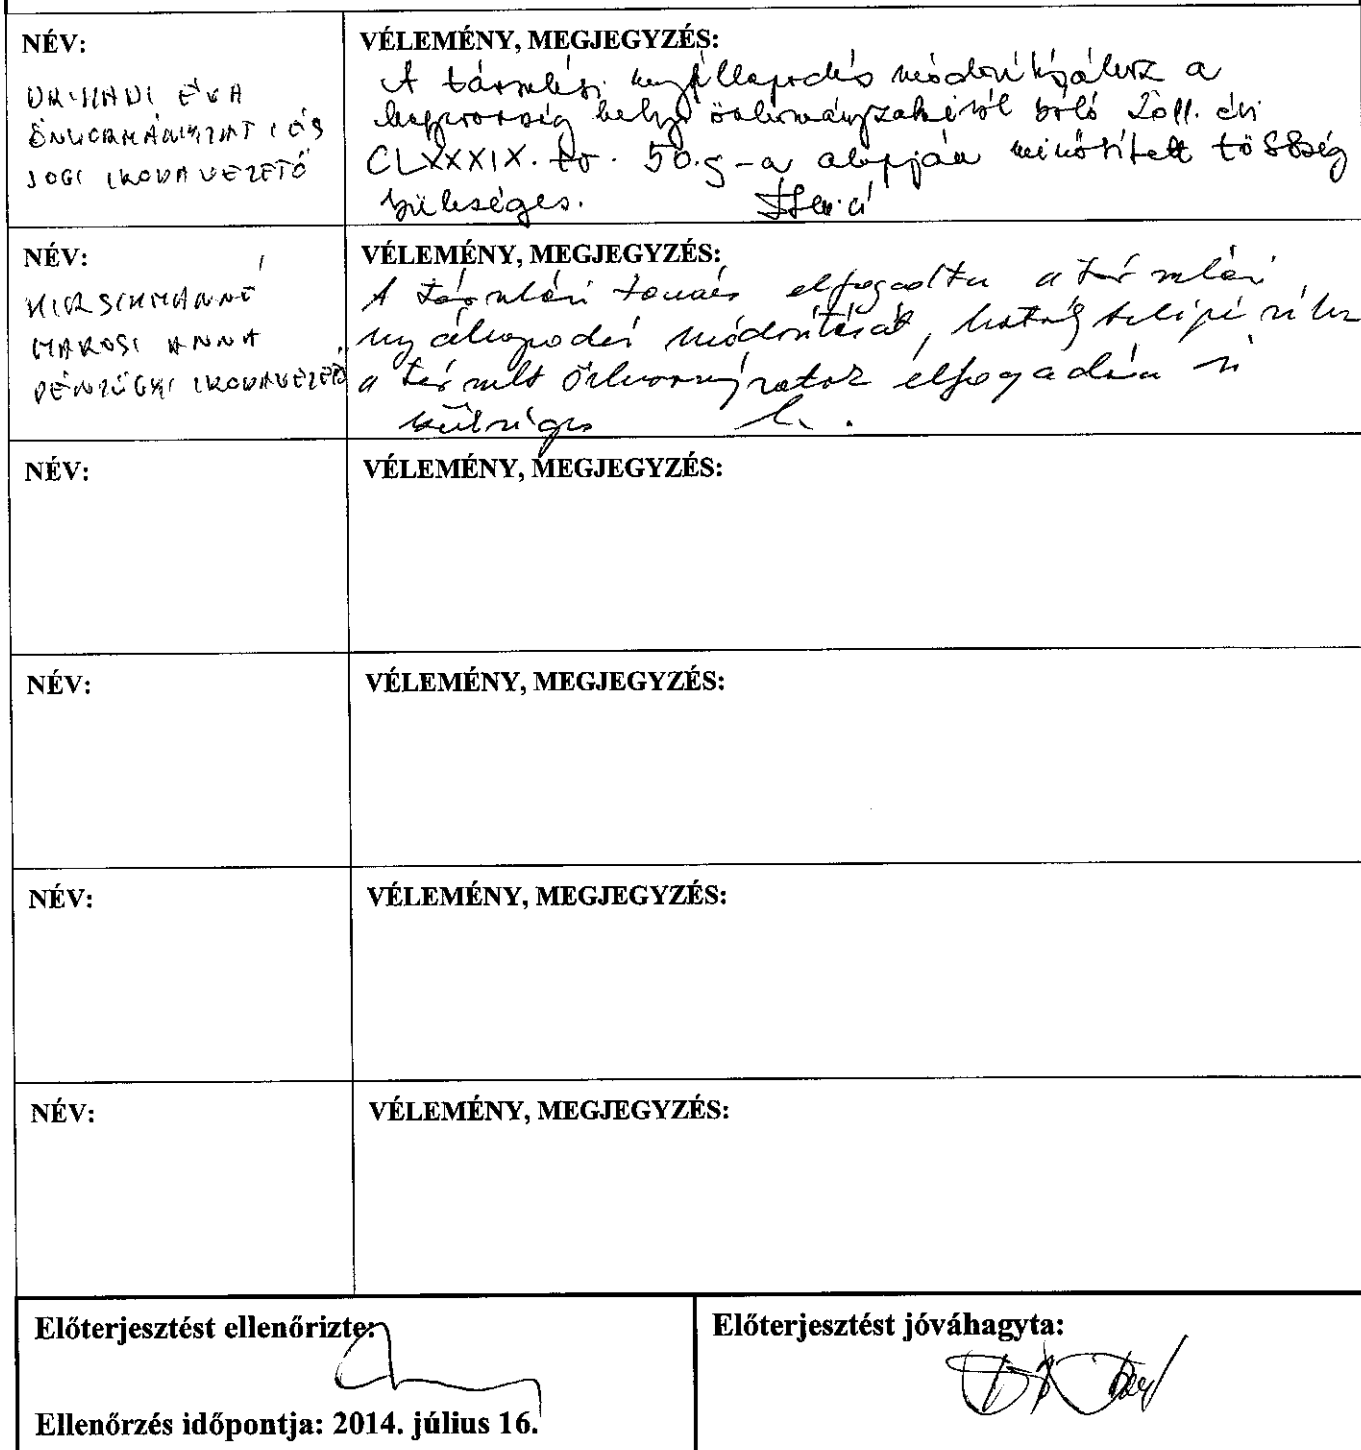 NÉV:
VÉLEMÉNY, MEGJEGYZÉS:
ÉVA
ÖNKORMÁNYZATI ÉS
JOGI IRODAVEZETŐ
A társulási megállapodás módosításához a
helyi önkormányzatairól szóló 2011. évi
CLXXXIX. tv. 50.§-a alapján minősített többség
szükséges.
NÉV:
VÉLEMÉNY, MEGJEGYZÉS:
HIRSCHMANNÉ
MAROSI ANNA
PÉNZÜGYI IRODAVEZETŐ
A társulási tanács elfogadta a társulási
megállapodás módosítását, hatálybalépéséhez
a társult önkormányzatok elfogadása is
szükséges
NÉV:
VÉLEMÉNY, MEGJEGYZÉS:
NÉV:
VÉLEMÉNY, MEGJEGYZÉS:
NÉV:
VÉLEMÉNY, MEGJEGYZÉS:
NÉV:
VÉLEMÉNY, MEGJEGYZÉS:
Előterjesztést ellenőrizte:
Ellenőrzés időpontja: 2014. július 16.
Előterjesztést jóváhagyta: